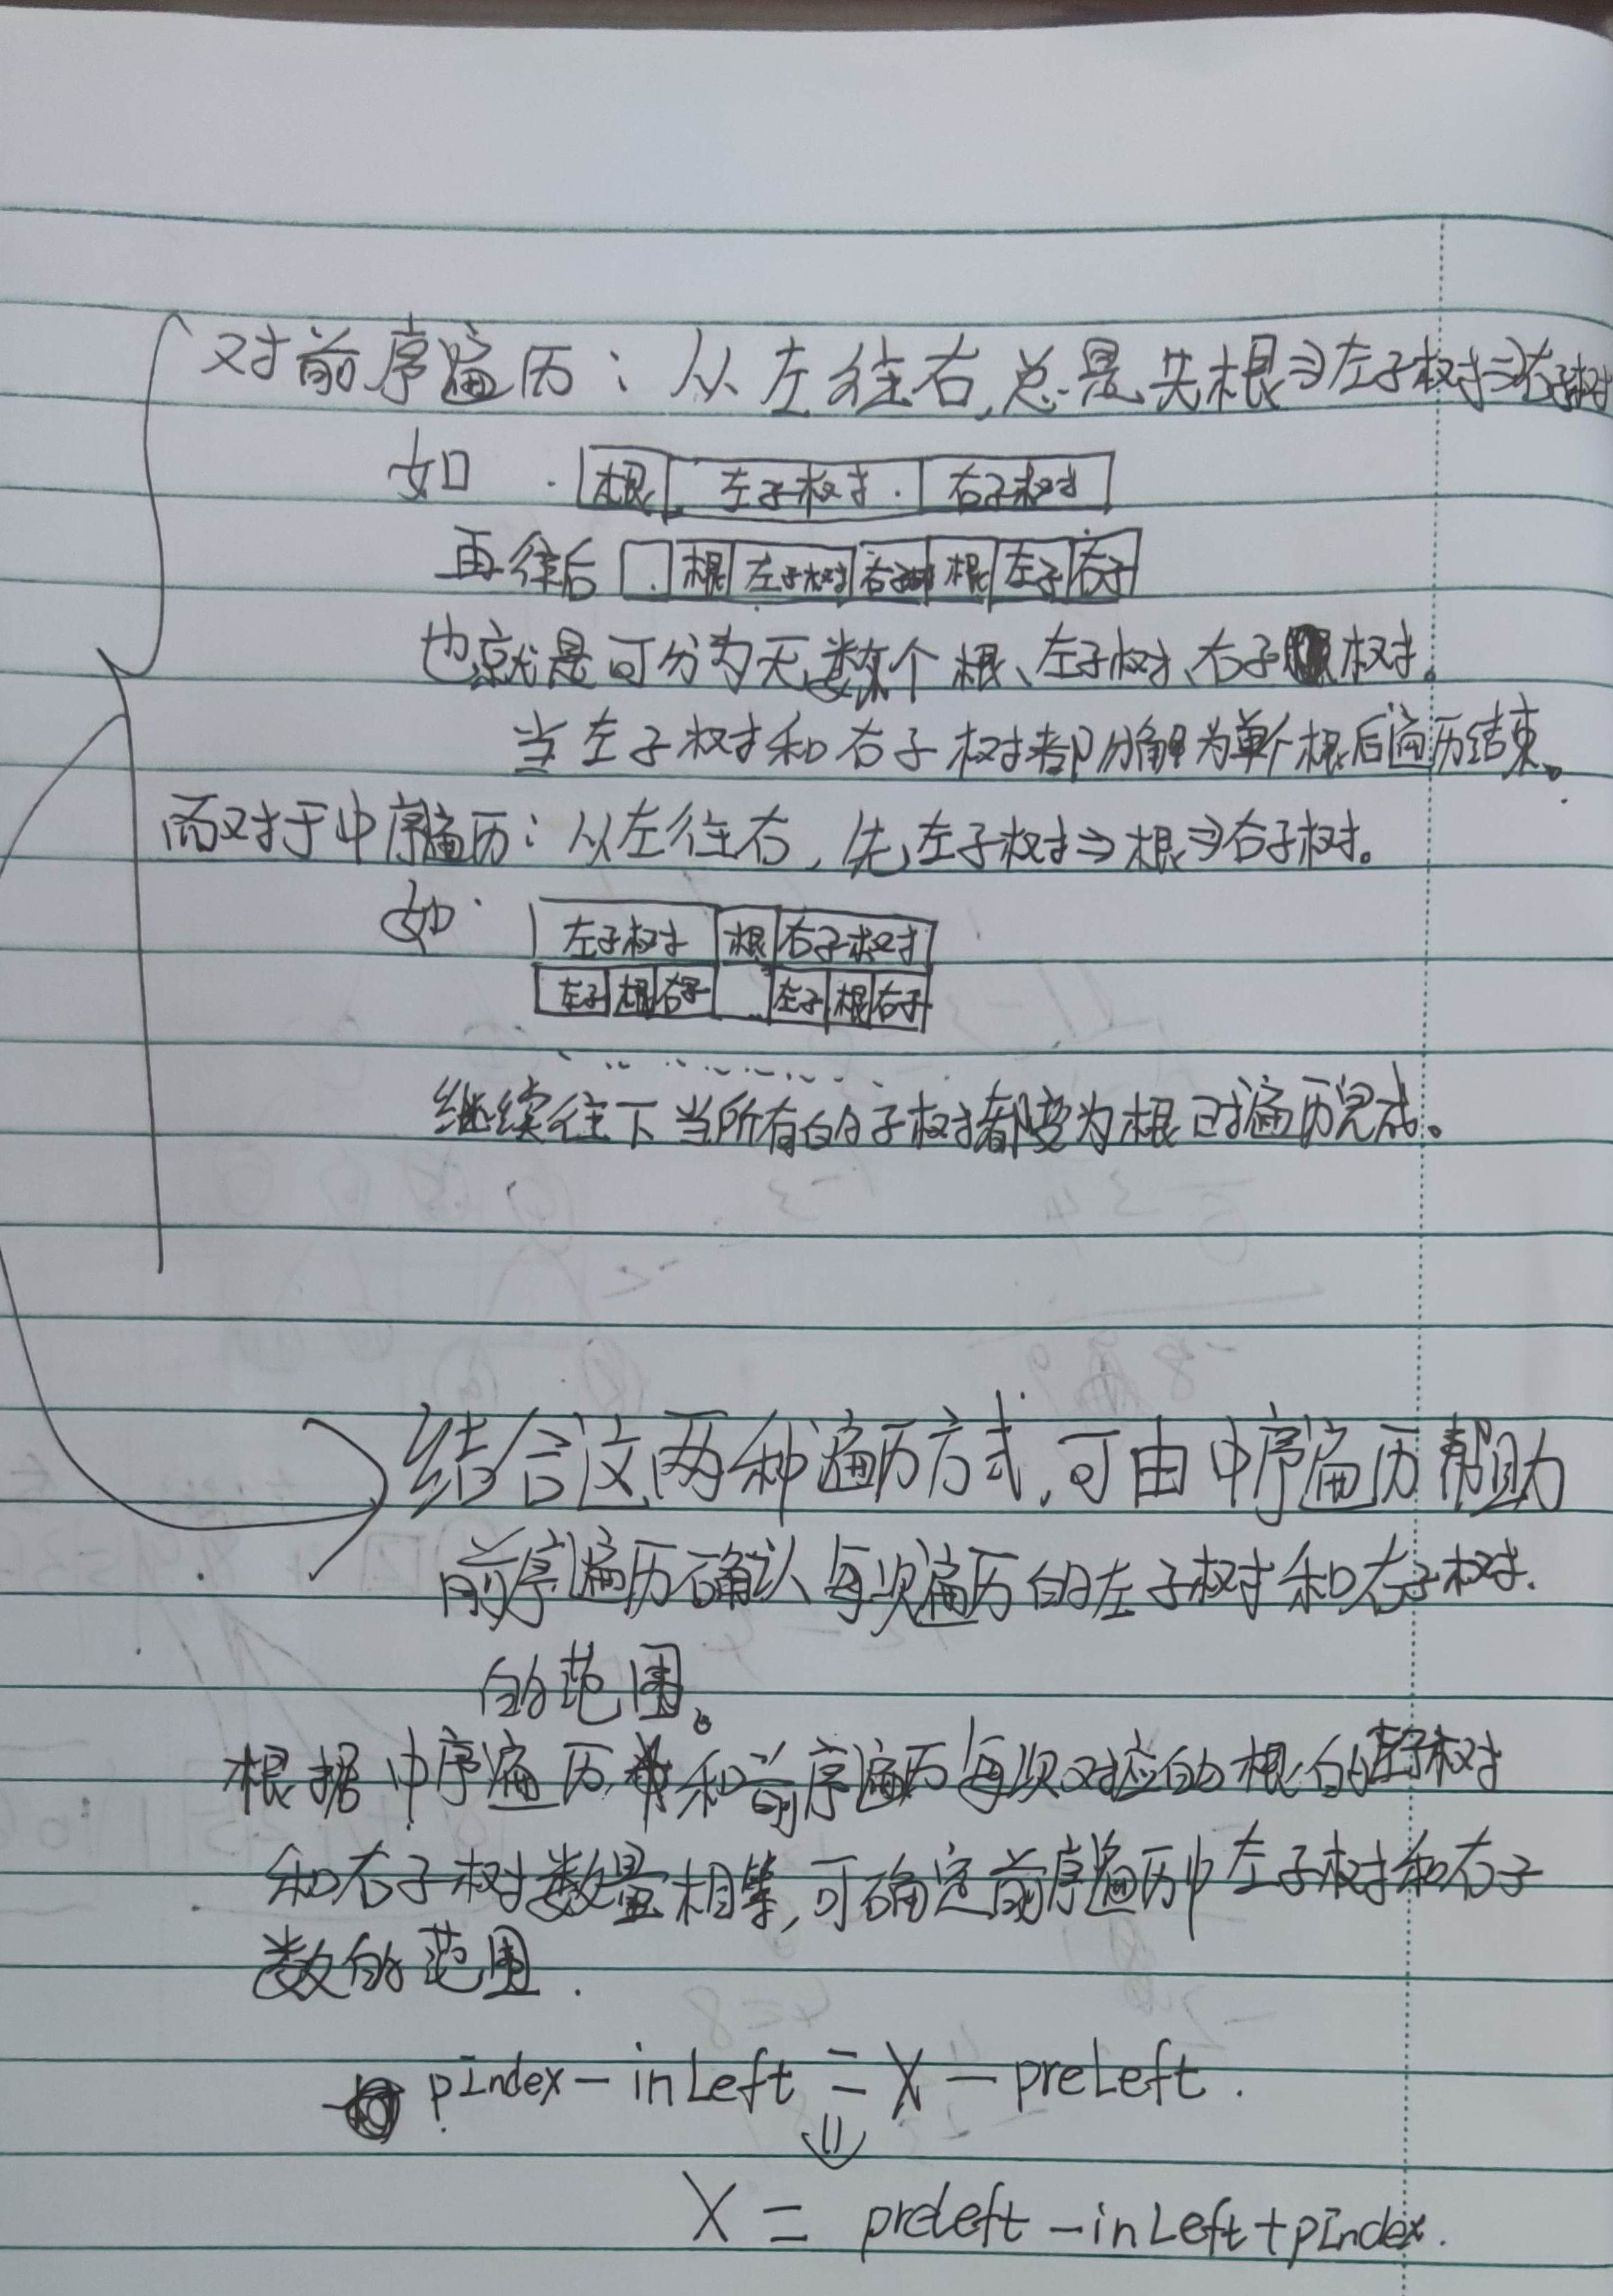 对前序遍历：从左往右，总是先根⇒左子树⇒右子树
如 根 左子树 右子树
再往后 根 左子树 右子树 根 左子 右子
也就是可分为无数个根、左子树、右子树。
当左子树和右子树都分解为单个根后遍历结束。
而对于中序遍历：从左往右，先左子树⇒根⇒右子树。
如 左子树 根 右子树
左子 根 右子 左子 根 右子
……
继续往下当所有的子树都变为根时遍历完成。
结合这两种遍历方式，可由中序遍历帮助
前序遍历确认每次遍历的左子树和右子树
的范围。
根据中序遍历和前序遍历每次对应的根的左子树
和右子树数量相等，可确定前序遍历中左子树和右子
数的范围.
pIndex-inLeft = X-preLeft.
⇓
X = preLeft-inLeft+pIndex.